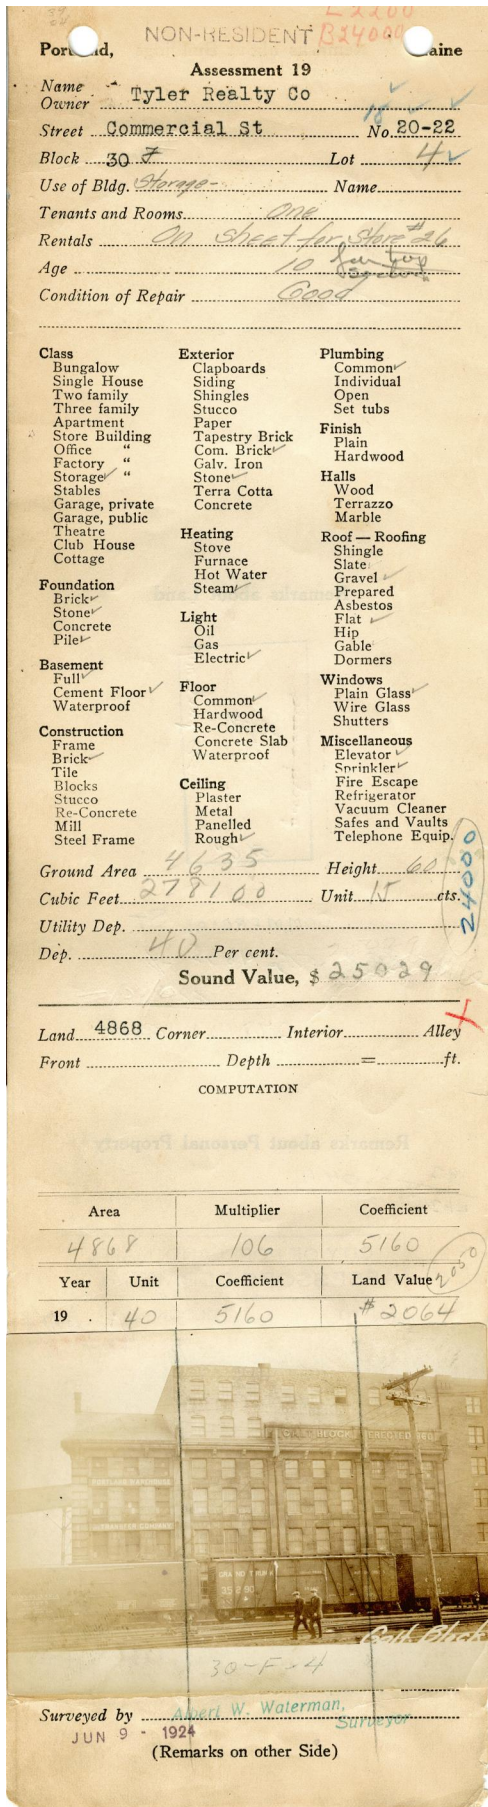 L 2200
NON-RESIDENT B24000
Portland, Maine
Assessment 19
Name
Owner Tyler Realty Co
18
Street Commercial St No. 20-22
Block 30 F Lot 4
Use of Bldg. Storage- Name
Tenants and Rooms One
Rentals On sheet for Store #26
Age 10
Condition of Repair Good
Class
Bungalow
Single House
Two family
Three family
Apartment
Store Building
Office "
Factory "
Storage ✓ "
Stables
Garage, private
Garage, public
Theatre
Club House
Cottage
Foundation
Brick ✓
Stone ✓
Concrete
Pile ✓
Basement
Full ✓
Cement Floor ✓
Waterproof
Construction
Frame
Brick ✓
Tile
Blocks
Stucco
Re-Concrete
Mill
Steel Frame
Exterior
Clapboards
Siding
Shingles
Stucco
Paper
Tapestry Brick
Com. Brick ✓
Galv. Iron
Stone ✓
Terra Cotta
Concrete
Heating
Stove
Furnace
Hot Water
Steam ✓
Light
Oil
Gas
Electric ✓
Floor
Common ✓
Hardwood
Re-Concrete
Concrete Slab
Waterproof
Ceiling
Plaster
Metal
Panelled
Rough ✓
Plumbing
Common ✓
Individual
Open
Set tubs
Finish
Plain
Hardwood
Halls
Wood
Terrazzo
Marble
Roof — Roofing
Shingle
Slate
Gravel ✓
Prepared
Asbestos
Flat ✓
Hip
Gable
Dormers
Windows
Plain Glass ✓
Wire Glass
Shutters
Miscellaneous
Elevator ✓
Sprinkler ✓
Fire Escape
Refrigerator
Vacuum Cleaner
Safes and Vaults
Telephone Equip.
24000
Ground Area 4635 Height 60
Cubic Feet 278100 Unit 15 cts.
Utility Dep.
Dep. 40 Per cent.
Sound Value, $ 25029
Land 4868 Corner Interior Alley
Front Depth = ft.
COMPUTATION
Remarks about Personal Property
Area Multiplier Coefficient
4868 106 5160
2050
Year Unit Coefficient Land Value
19 40 5160 # 2064
GALT BLOCK ERECTED
PORTLAND WAREHOUSE
TRANSFER COMPANY
GRAND TRUNK
Galt Block
30-F-4
Surveyed by Albert W. Waterman,
Surveyor
JUN 9 - 1924
(Remarks on other Side)